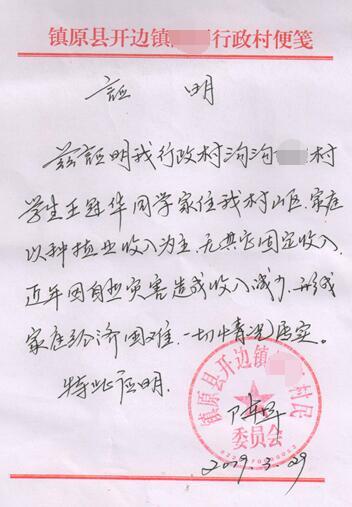 镇原县开边镇 行政村便笺
証 明
兹証明我行政村沟沟 村
学生王 华同学家住我村山区,家庭
以种植业收入为主,无其它固定收入,
近年因自然灾害造成收入减少,形成
家庭经济困难,一切情况属实。
特此证明.
镇原县开边镇 村民
委员会
2009.3.29